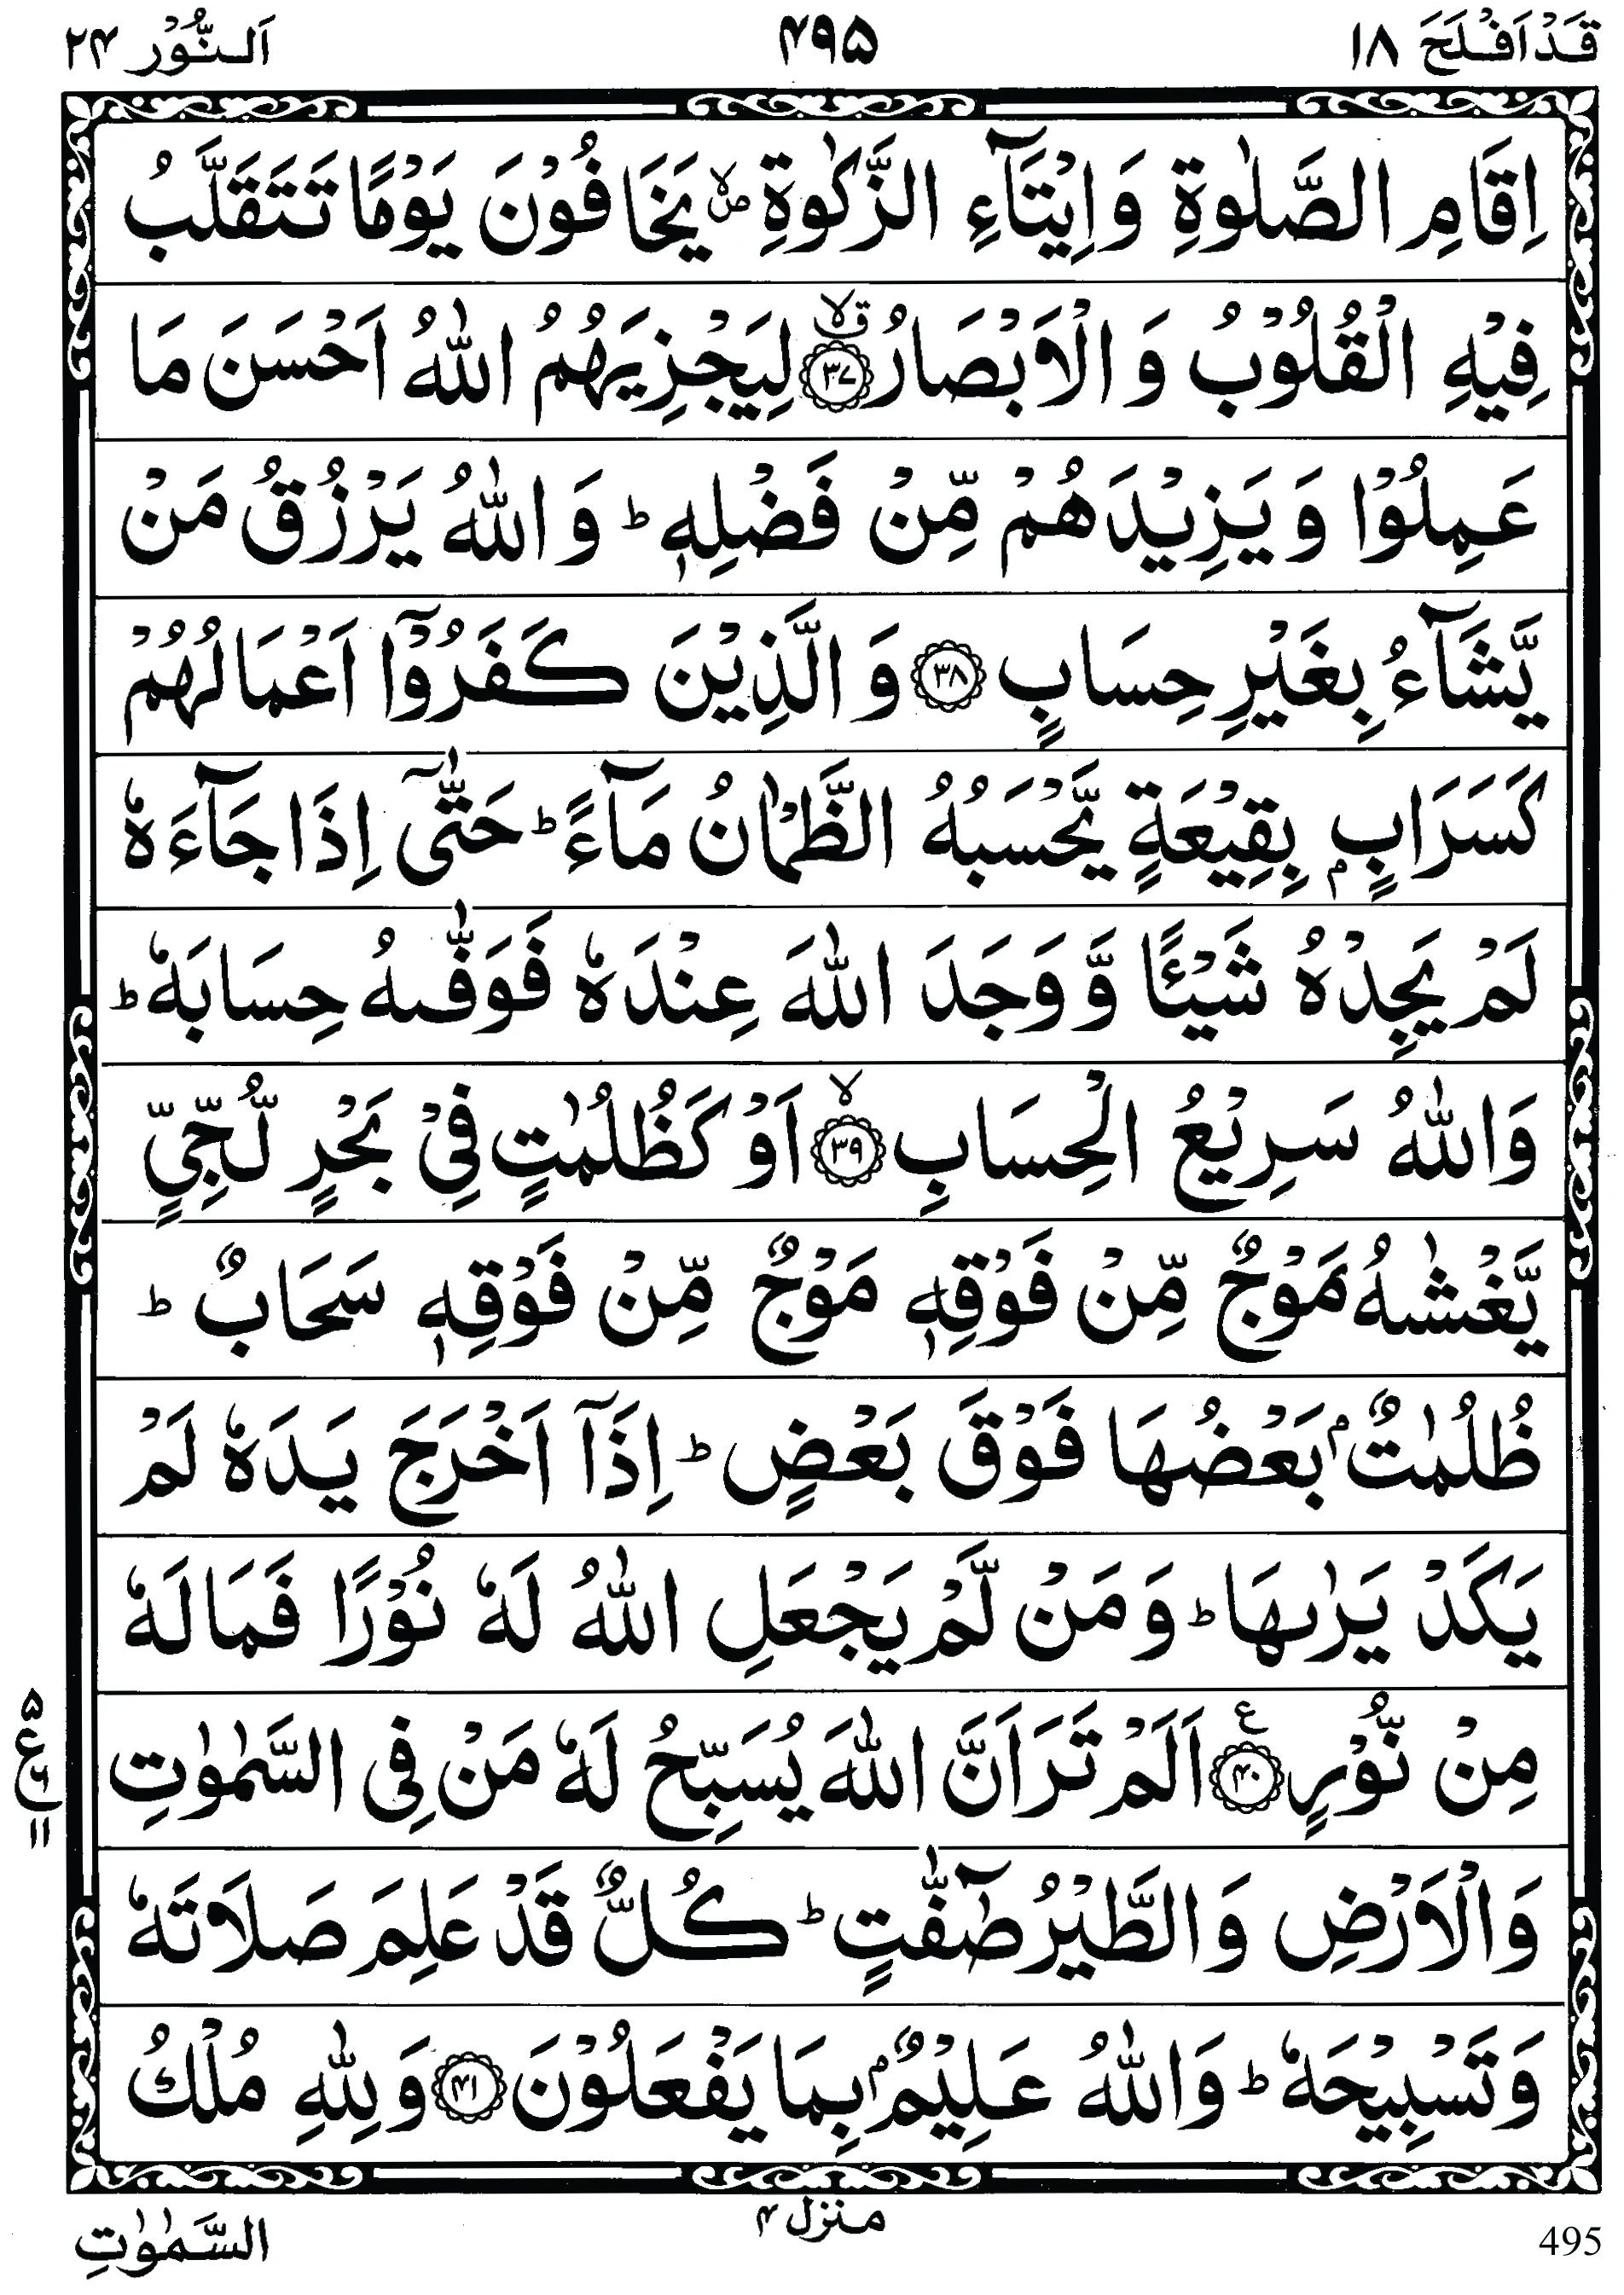 قَدْ اَفْلَحَ ١٨ ۴۹۵ اَلنُّوْر ٢۴
اِقَامِ الصَّلٰوةِ وَ اِيْتَآءِ الزَّكٰوةِ ۪ۙ يَخَافُوْنَ يَوْمًا تَتَقَلَّبُ
فِيْهِ الْقُلُوْبُ وَ الْاَبْصَارُ ۙق ﴿۳۷﴾ لِيَجْزِيَهُمُ اللّٰهُ اَحْسَنَ مَا
عَمِلُوْا وَ يَزِيْدَهُمْ مِّنْ فَضْلِهٖ ؕ وَ اللّٰهُ يَرْزُقُ مَنْ
يَّشَآءُ بِغَيْرِ حِسَابٍ ﴿۳۸﴾ وَ الَّذِيْنَ كَفَرُوْۤا اَعْمَالُهُمْ
كَسَرَابٍۭ بِقِيْعَةٍ يَّحْسَبُهُ الظَّمْاٰنُ مَآءً ؕ حَتّٰۤى اِذَا جَآءَهٗ
لَمْ يَجِدْهُ شَيْـًٔا وَّ وَجَدَ اللّٰهَ عِنْدَهٗ فَوَفّٰىهُ حِسَابَهٗ ؕ
وَاللّٰهُ سَرِيْعُ الْحِسَابِ ۙ ﴿۳۹﴾ اَوْ كَظُلُمٰتٍ فِيْ بَحْرٍ لُّجِّيٍّ
يَّغْشٰىهُ مَوْجٌ مِّنْ فَوْقِهٖ مَوْجٌ مِّنْ فَوْقِهٖ سَحَابٌ ؕ
ظُلُمٰتٌۢ بَعْضُهَا فَوْقَ بَعْضٍ ؕ اِذَاۤ اَخْرَجَ يَدَهٗ لَمْ
يَكَدْ يَرٰىهَا ؕ وَ مَنْ لَّمْ يَجْعَلِ اللّٰهُ لَهٗ نُوْرًا فَمَا لَهٗ
مِنْ نُّوْرٍ ع ﴿۴۰﴾ اَلَمْ تَرَ اَنَّ اللّٰهَ يُسَبِّحُ لَهٗ مَنْ فِي السَّمٰوٰتِ
۵
ع ٦
١١
وَالْاَرْضِ وَالطَّيْرُ صٰٓفّٰتٍ ؕ كُلٌّ قَدْ عَلِمَ صَلَاتَهٗ
وَتَسْبِيْحَهٗ ؕ وَاللّٰهُ عَلِيْمٌۢ بِمَا يَفْعَلُوْنَ ﴿۴۱﴾ وَلِلّٰهِ مُلْكُ
منزل ۴
السَّمٰوٰتِ
495